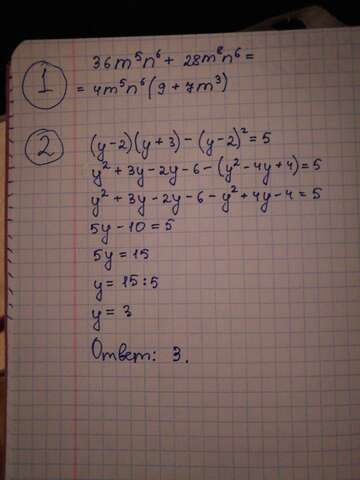 ① 36m⁵n⁶ + 28m⁸n⁶ =
= 4m⁵n⁶(9 + 7m³)
② (y-2)(y+3) - (y-2)² = 5
y² + 3y - 2y - 6 - (y² - 4y + 4) = 5
y² + 3y - 2y - 6 - y² + 4y - 4 = 5
5y - 10 = 5
5y = 15
y = 15 : 5
y = 3
Ответ: 3.